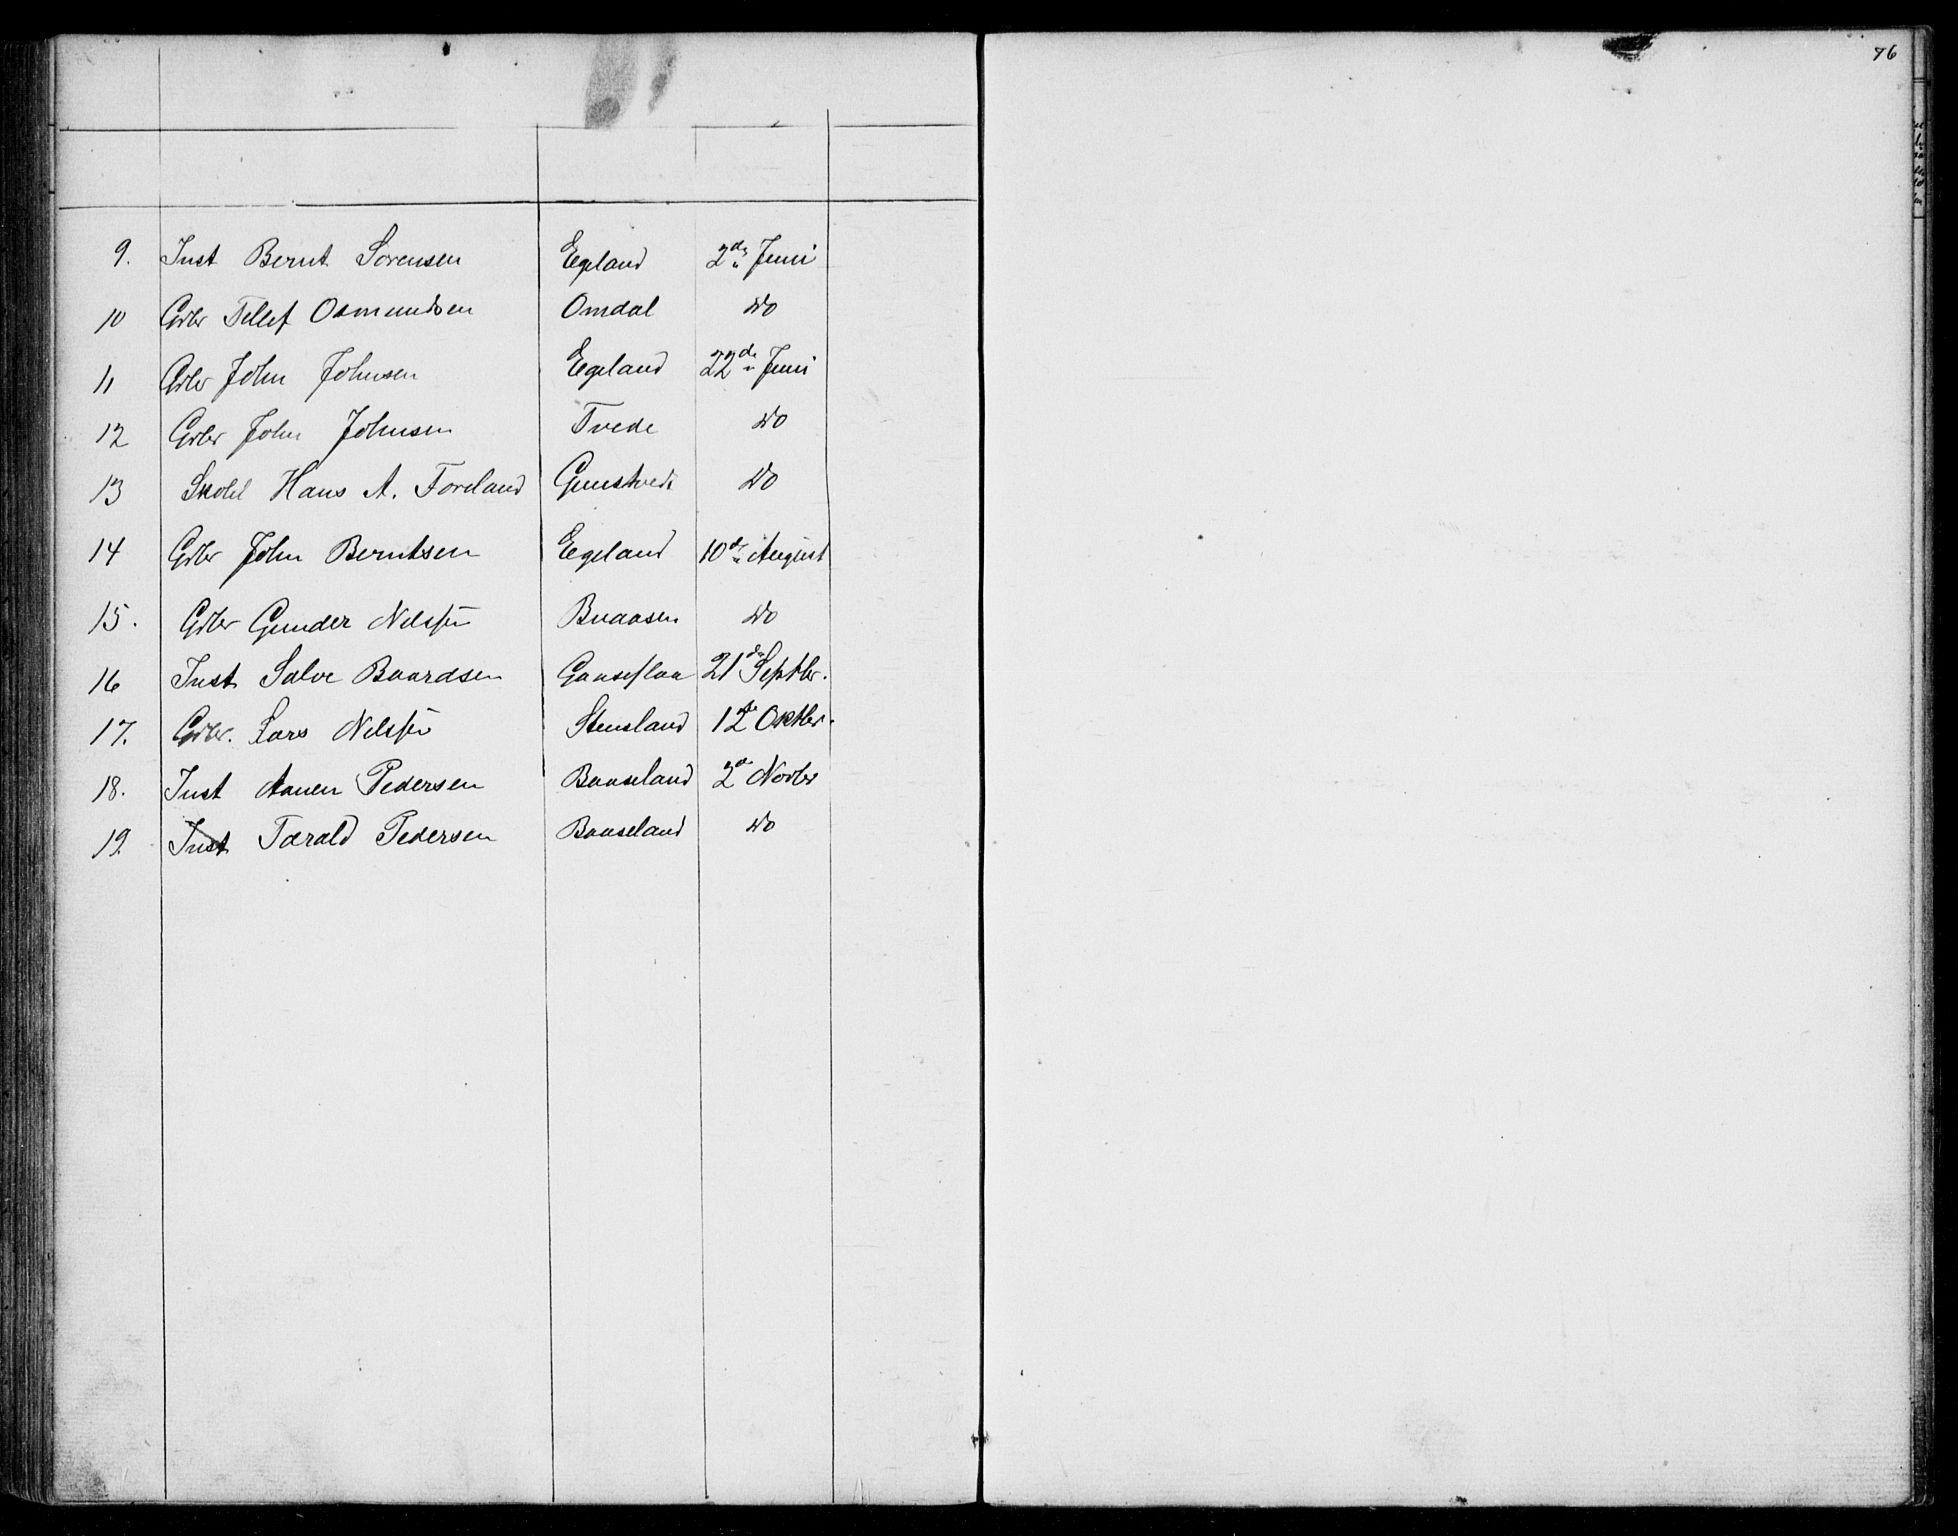 76
9. Inst Bernt Sørensen Egeland 2den Juni
10 Gdbr Tellef Osmundsen Omdal do
11 Gdbr John Johnsen Egeland 22de Juni
12 Gdbr John Johnsen Tvede do
13 Skolel Hans A. Foreland Gunstvedt do
14 Gdbr John Berntsen Egeland 10de August
15. Gdbr Gunder Nilssen Buaasen do
16 Inst Salve Baardsen Gaaseflaa 21de Septbr.
17. Gdbr. Lars Nilssen Stensland 12te Oktbr.
18. Inst Aanen Pedersen Baaseland 2den Novbr
19. Inst Tarald Pedersen Baaseland do